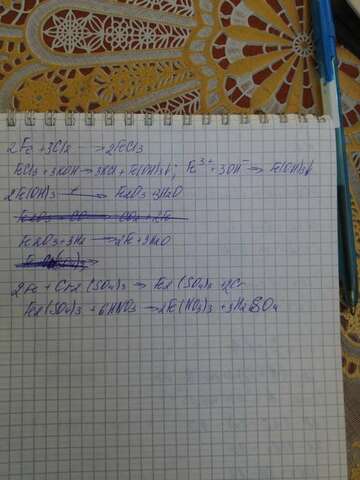 2Fe + 3Cl2 → 2FeCl3
FeCl3 + 3KOH → 3KCl + Fe(OH)3↓; Fe3+ + 3OH- → Fe(OH)3↓
2Fe(OH)3 → Fe2O3 + 3H2O
Fe2O3 + CO → CO2 + 2Fe
Fe2O3 + 3H2 → 2Fe + 3H2O
2Fe + Cr2(SO4)3 → Fe2(SO4)3 + 2Cr
Fe2(SO4)3 + 6HNO3 → 2Fe(NO3)3 + 3H2SO4